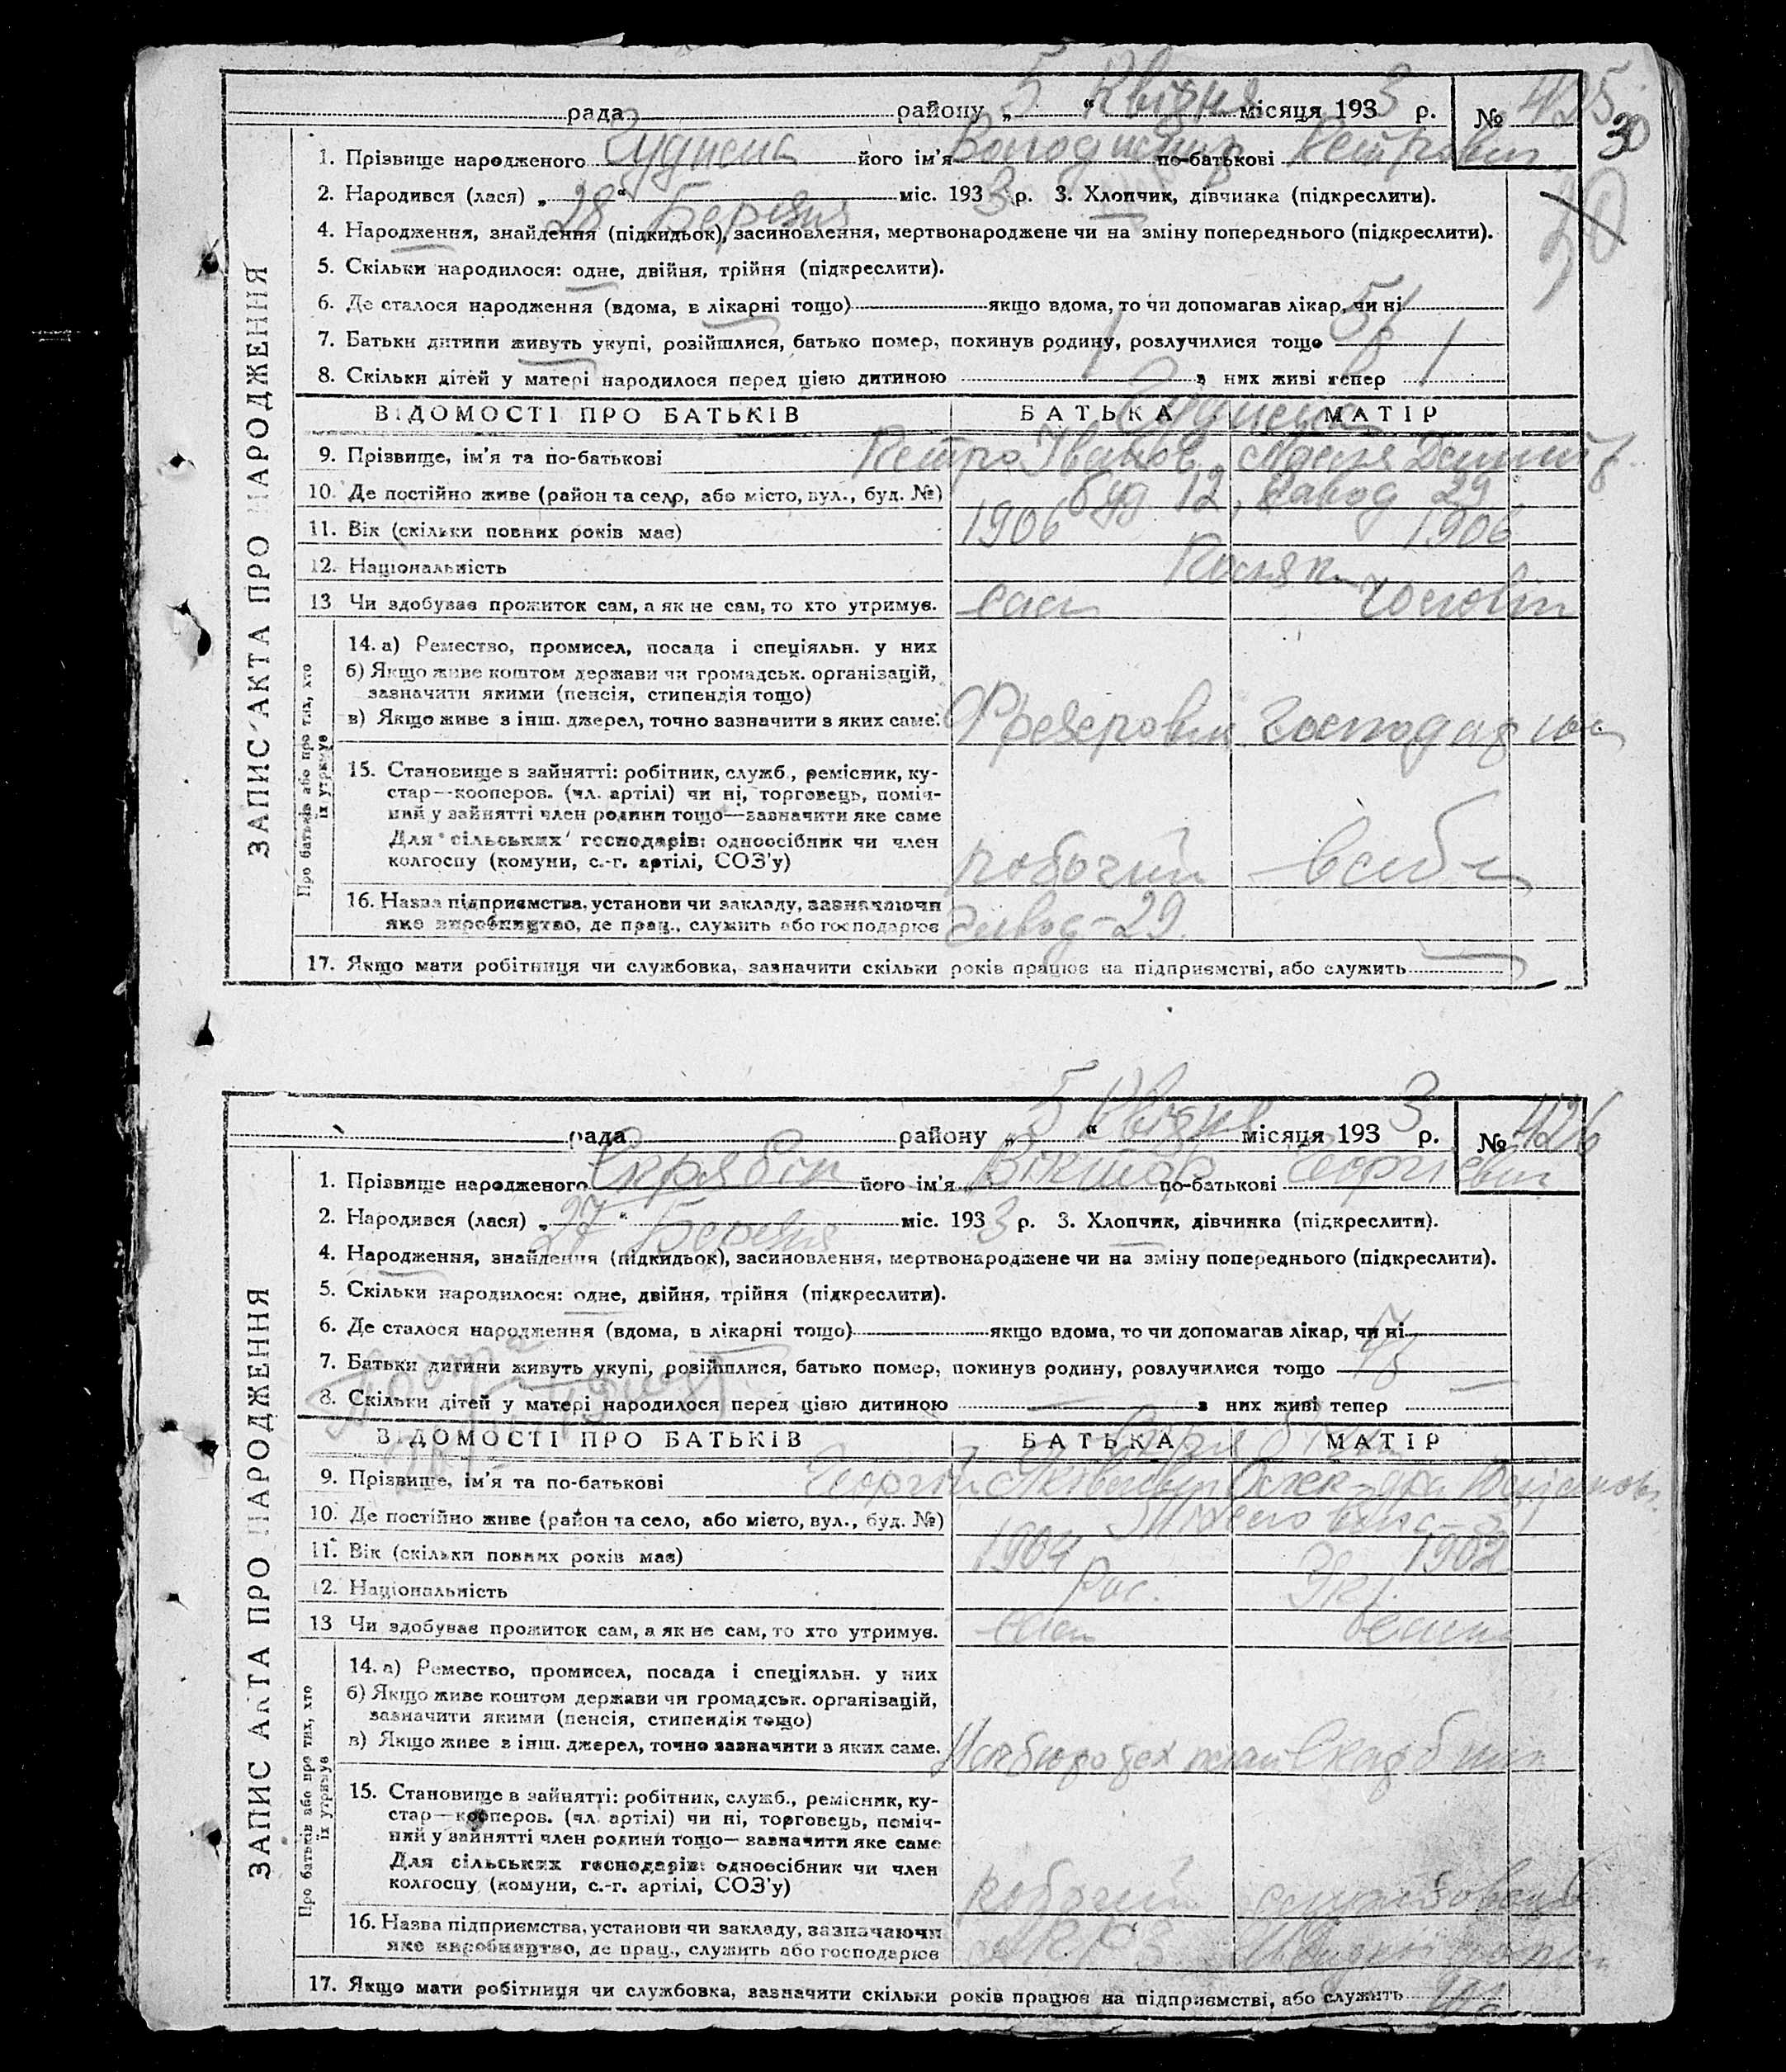 рада района „ 5 “ Квітня місяця 1933 р. № 425
30
1. Прізвище народженого його ім'я Володимир по-батькові Петрович
2. Народився (лася) „ 28 “ Березня міс. 1933 р. 3. Хлопчик, дівчинка (підкреслити).
4. Народження, знайдення (підкидьок), засиновлення, мертвонароджене чи на зміну попереднього (підкреслити).
5. Скільки народилося: одне, двійня, трійня (підкреслити).
6. Де сталося народження (вдома, в лікарні тощо) якщо вдома, то чи допомагав лікар, чи ні
7. Батьки дитини живуть укупі, розійшлися, батько помер, покинув родину, розлучилися тощо
8. Скільки дітей у матері народилося перед цією дитиною 1 з них живі тепер 1
ВІДОМОСТІ ПРО БАТЬКІВ БАТЬКА МАТІР
9. Прізвище, ім'я та по-батькові Петро Іванов
10. Де постійно живе (район та село, або місто, вул., буд. №) буд 12, завод 29
11. Вік (скільки повних років має) 1906 1906
12. Національність
13 Чи здобуває прожиток сам, а як не сам, то хто утримує. сам чоловік
14. а) Ремество, промисел, посада і спеціяльн. у них
б) Якщо живе коштом держави чи громадськ. організацій,
зазначити якими (пенсія, стипендія тощо)
в) Якщо живе з інш. джерел, точно зазначити з яких саме. Фрезеровщ господарка
15. Становище в зайнятті: робітник, служб., ремісник, ку-
стар—кооперов. (чл. артілі) чи ні, торговець, поміч-
ний у зайнятті член родини тощо—зазначити яке саме
Для сільських господарів: одноосібник чи член
колгоспу (комуни, с.-г. артілі, СОЗ'у) робочий
16. Назва підприємства, установи чи закладу, зазначаючи
яке виробництво, де прац., служить або господарює завод-29.
17. Якщо мати робітниця чи службовка, зазначити скільки років працює на підприємстві, або служить
ЗАПИС АКТА ПРО НАРОДЖЕННЯ
Про батьків або про тих, хто
їх утримує
рада району „ 5 “ Квітня місяця 1933 р. № 426
1. Прізвище народженого Скрябін його ім'я Віктор по-батькові Георгієвич
2. Народився (лася) „ 27 “ Березня міс. 1933 р. 3. Хлопчик, дівчинка (підкреслити).
4. Народження, знайдення (підкидьок), засиновлення, мертвонароджене чи на зміну попереднього (підкреслити).
5. Скільки народилося: одне, двійня, трійня (підкреслити).
6. Де сталося народження (вдома, в лікарні тощо) якщо вдома, то чи допомагав лікар, чи ні
7. Батьки дитини живуть укупі, розійшлися, батько помер, покинув родину, розлучилися тощо
8. Скільки дітей у матері народилося перед цією дитиною — з них живі тепер —
ВІДОМОСТІ ПРО БАТЬКІВ БАТЬКА МАТІР
9. Прізвище, ім'я та по-батькові Георгій
10. Де постійно живе (район та село, або місто, вул., буд. №)
11. Вік (скільки повних років має) 1904 1902
12. Національність Рос. Укр.
13 Чи здобуває прожиток сам, а як не сам, то хто утримує. сам
14. а) Ремество, промисел, посада і спеціяльн. у них
б) Якщо живе коштом держави чи громадськ. організацій,
зазначити якими (пенсія, стипендія тощо)
в) Якщо живе з інш. джерел, точно зазначити з яких саме.
15. Становище в зайнятті: робітник, служб., ремісник, ку-
стар—кооперов. (чл. артілі) чи ні, торговець, поміч-
ний у зайнятті член родини тощо—зазначити яке саме
Для сільських господарів: одноосібник чи член
колгоспу (комуни, с.-г. артілі, СОЗ'у) робочий
16. Назва підприємства, установи чи закладу, зазначаючи
яке виробництво, де прац., служить або господарює
17. Якщо мати робітниця чи службовка, зазначити скільки років працює на підприємстві, або служить
ЗАПИС АКТА ПРО НАРОДЖЕННЯ
Про батьків або про тих, хто
їх утримує